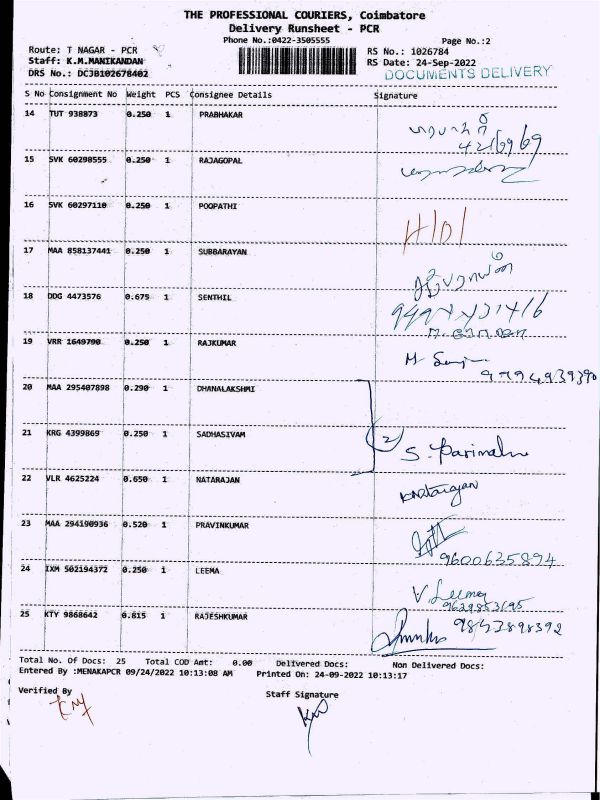 THE PROFESSIONAL COURIERS, Coimbatore
Delivery Runsheet - PCR
Phone No.:0422-3505555
Page No.:2
Route: T NAGAR - PCR
RS No.: 1026784
Staff: K.M.MANIKANDAN
RS Date: 24-Sep-2022
DRS No.: DCJB102678402
DOCUMENTS DELIVERY
S No Consignment No Weight PCS Consignee Details Signature
14 TUT 938873 0.250 1 PRABHAKAR
15 SVK 60298555 0.250 1 RAJAGOPAL
16 SVK 60297110 0.250 1 POOPATHI
17 MAA 858137441 0.250 1 SUBBARAYAN
18 DDG 4473576 0.675 1 SENTHIL
19 VRR 1649790 0.250 1 RAJKUMAR
20 MAA 295407898 0.290 1 DHANALAKSHMI
21 KRG 4399869 0.250 1 SADHASIVAM
2
S. Parimala
22 VLR 4625224 0.650 1 NATARAJAN
KNatarajan
23 MAA 294190936 0.520 1 PRAVINKUMAR
9600635894
24 IXM 502194372 0.250 1 LEEMA
V. Leema
25 KTY 9868642 0.815 1 RAJESHKUMAR
Total No. Of Docs: 25 Total COD Amt: 0.00 Delivered Docs: Non Delivered Docs:
Entered By :MENAKAPCR 09/24/2022 10:13:08 AM Printed On: 24-09-2022 10:13:17
Verified By
Staff Signature